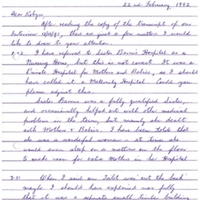 22nd February, 1992
Dear Robyn
After reading the copy of the Transcript of our
Interview, there are just a few matters I would
like to draw to your attention.
I have referred to Sister Hospital as a
Nursing Home, but this is not correct. It was a
Private Hospital for Mothers and Babies, so I should
have called it a Maternity Hospital. Could you
please adjust this.
Sister was a fully qualified Sister,
and occasionally helped out with the medical
problem on the town, but mainly she dealt
with Mothers & Babies. I have been told that
she was a wonderful woman - at times she
would even sleep on a mattress on the floor
to made room for extra Mothers in her Hospital
When I said our Toilet was out the back
maybe I should have explained more fully
that it was a separate small timber building